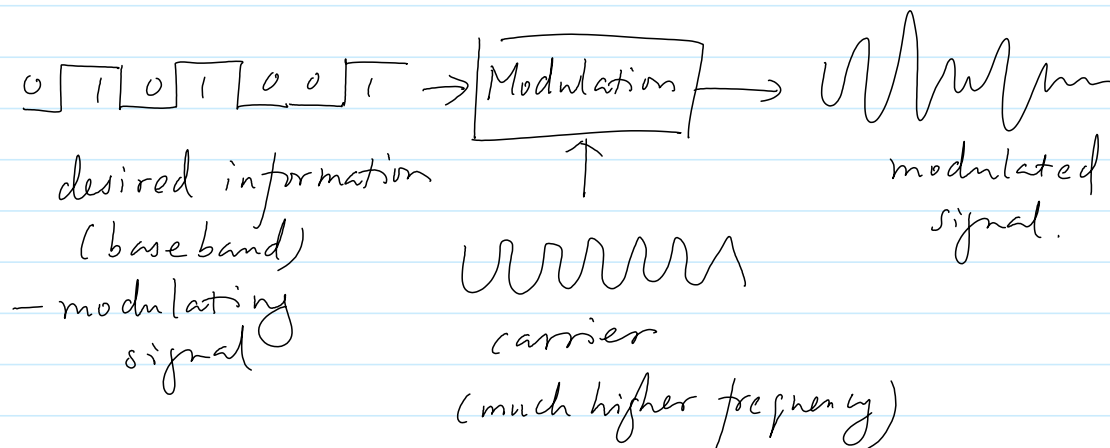 0 1 0 1 0 0 1
Modulation
desired information
(baseband)
- modulating
signal
carrier
(much higher frequency)
modulated
signal.